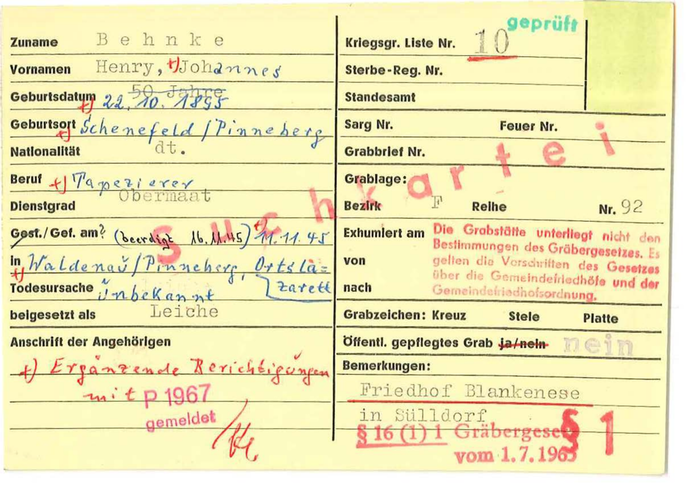 Zuname Behnke
Vornamen Henry, +) Johannes
Geburtsdatum 50 Jahre
+) 22.10.1895
Geburtsort +) Schenefeld/Pinneberg
Nationalität dt.
Beruf +) Tapezierer
Dienstgrad Obermaat
Gest./Gef. am? (beerdigt 16.11.45) +) 11.11.45
in +) Waldenau/Pinneberg, Ortsla-
zarett
Todesursache Unbekannt
beigesetzt als Leiche
Anschrift der Angehörigen
+) Ergänzende Berichtigungen
mit P 1967
gemeldet
Suchkartei
geprüft
Kriegsgr. Liste Nr. 10
Sterbe-Reg. Nr.
Standesamt
Sarg Nr. Feuer Nr.
Grabbrief Nr.
Grablage:
Bezirk F Reihe Nr. 92
Exhumiert am
von
nach
Die Grabstätte unterliegt nicht den
Bestimmungen des Gräbergesetzes. Es
gelten die Vorschriften des Gesetzes
über die Gemeindefriedhöfe und der
Gemeindefriedhofsordnung.
Grabzeichen: Kreuz Stele Platte
Öffentl. gepflegtes Grab ja/nein nein
Bemerkungen:
Friedhof Blankenese
in Sülldorf
§ 16 (1) 1 Gräbergesetz
vom 1.7.1965
§ 1